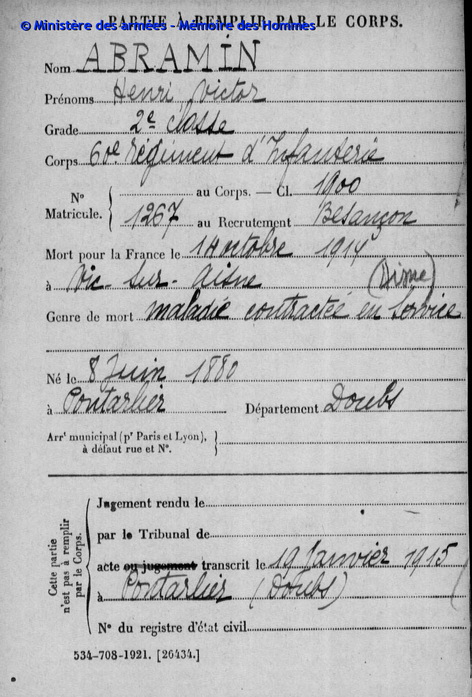 PARTIE À REMPLIR PAR LE CORPS.
© Ministère des armées - Mémoire des Hommes
Nom ABRAMIN
Prénoms Henri Victor
Grade 2e classe
Corps 60e Régiment d'Infanterie
N° Matricule. au Corps. — Cl. 1900
1267 au Recrutement Besançon
Mort pour la France le 14 octobre 1914
à Vic-sur-Aisne (Aisne)
Genre de mort maladie contractée en service
Né le 8 Juin 1880
à Pontarlier Département Doubs
Arrt municipal (pr Paris et Lyon),
à défaut rue et N°.
Cette partie n'est pas à remplir par le Corps.
Jugement rendu le
par le Tribunal de
acte ou jugement transcrit le 19 Janvier 1915
à Pontarlier (Doubs)
N° du registre d'état civil
534-708-1921. [26434.]